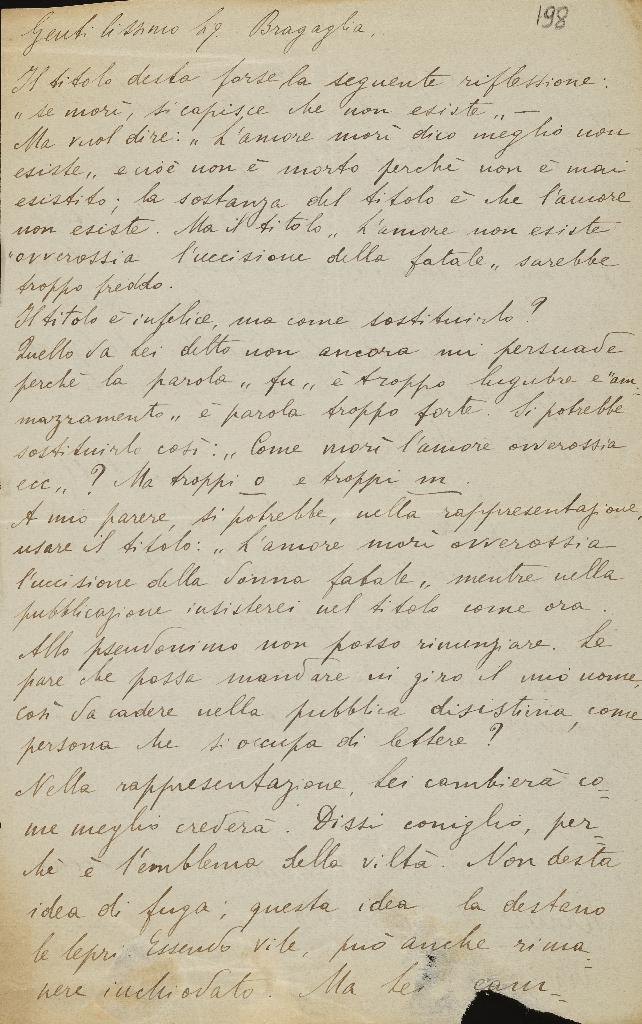 198
Gentilissimo Sg. Bragaglia,
Il titolo desta forse la seguente riflessione:
„ se morì, si capisce che non esiste „ —
Ma vuol dire: „ L'amore morì dico meglio non
esiste „ e cioè non è morto perchè non è mai
esistito; la sostanza del titolo è che l'amore
non esiste. Ma il titolo „ L'amore non esiste
"ovverossia l'uccisione della fatale „ sarebbe
troppo freddo.
Il titolo è infelice, ma come sostituirlo?
Quello da Lei detto non ancora mi persuade
perchè la parola „ fu „ è troppo lugubre e "am-
mazzamento „ è parola troppo forte. Si potrebbe
sostituirlo così: „ Come morì l'amore ovverossia
ecc „ ? Ma troppi o e troppi m.
A mio parere, si potrebbe, nella rappresentazione,
usare il titolo: „ L'amore morì ovverossia
l'uccisione della donna fatale „ mentre nella
pubblicazione insisterei nel titolo come ora.
Allo pseudonimo non posso rinunziare. Le
pare che possa mandare in giro il mio nome,
così da cadere nella pubblica disistima, come
persona che si occupa di lettere?
Nella rappresentazione, Lei cambierà co=
me meglio crederà. Dissi coniglio, per=
chè è l'emblema della viltà. Non desta
idea di fuga; questa idea la destano
le lepri. Essendo vile, può anche rima=
nere inchiodato. Ma Lei cam=